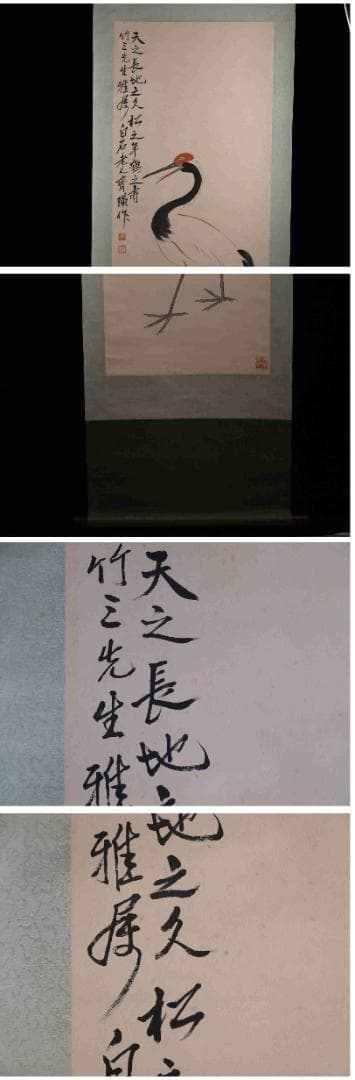 天之長地之久松之年鶴之壽
竹三先生雅屬白石老人齊璜作
天之長地
竹三先生雅
地之久松之
雅屬白